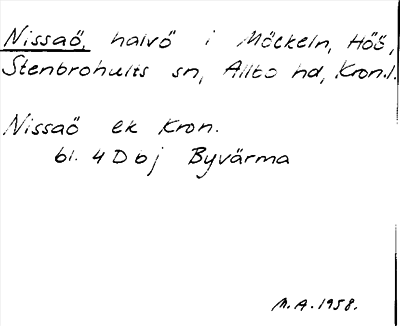 Nissaö, halvö i Möckeln, Höö,
Stenbrohults sn, Allbo hd, Kron.l.
Nissaö ek Kron.
bl. 4 D bj Byvärma
M.A. 1958.